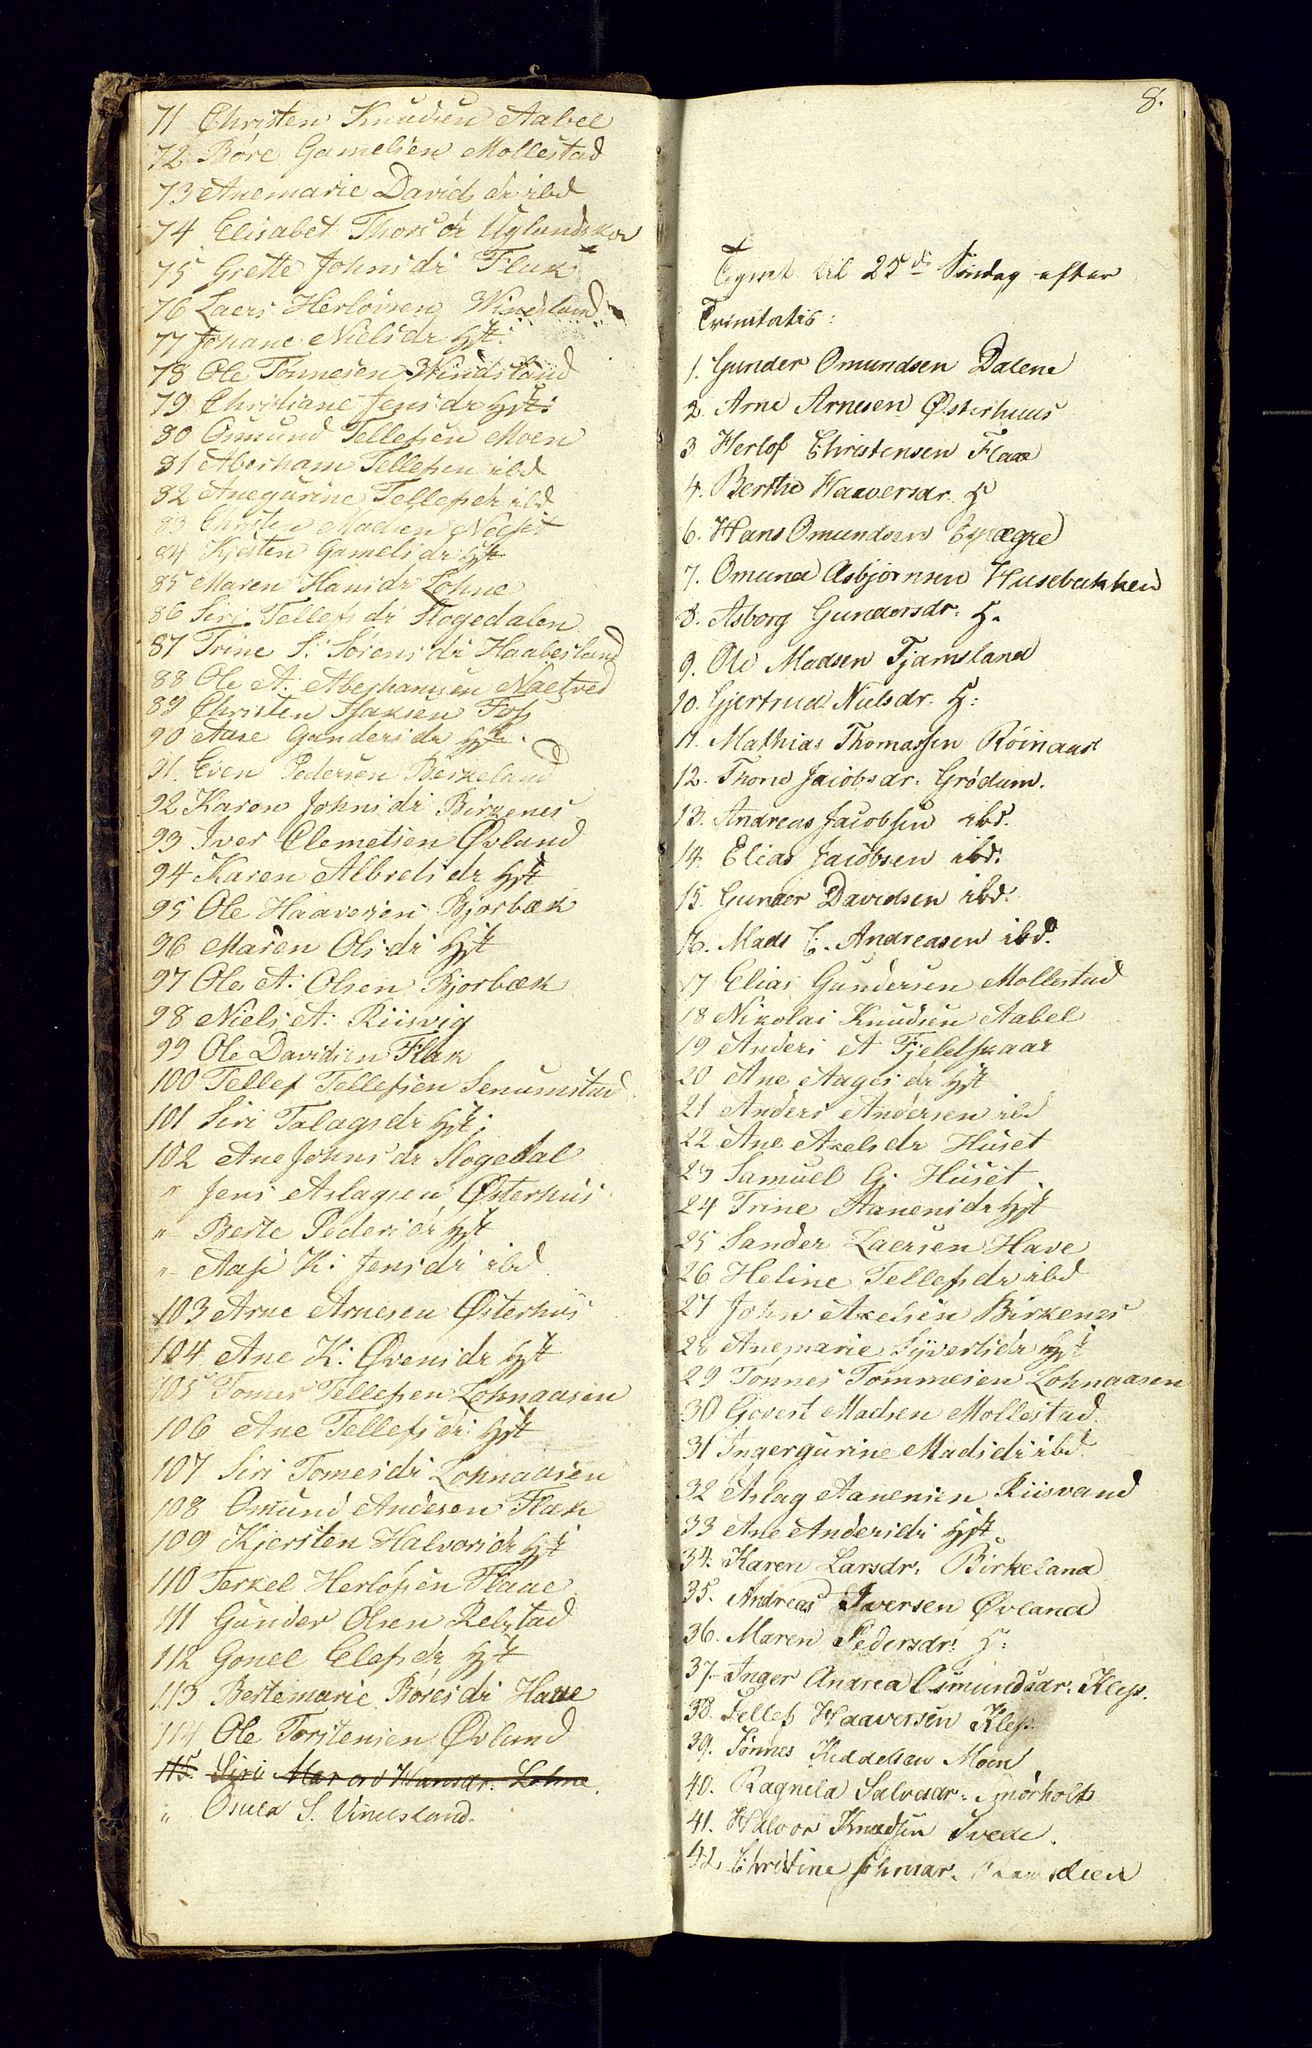 71 Christen Knudsen Aabel
72 Böre Gamelsen Mollestad
73 Anemarie Davids dr ibd
74 Elisabet Thors dr Uglundskor
75 Grette Johns dr Flak
76 Laers Herlovsen Windsland
77 Johane Niels dr Hst:
78 Ole Tönnesen Windsland
79 Christiane Jens dr Hst:
80 Osmund Tellefsen Moen
81 Aberham Tellefsen ibd
82 Anegurine Tellefs dr ibd
83 Christen Madsen
84 Kjesten Gamels dr Hst
85 Maren Hans dr Lohne
86 Siri Tellefs dr Flogedalen
87 Trine S: Sörens dr Haabesland
88 Ole A: Aberhamsen Naetved
89 Christen Isaksen Foss
90 Ane Gunders dr Hst.
91. Even Pedersen Berkeland
92 Karen Johns dr Birkenes
93 Iver Clemetsen Øvland
94 Karen Albrets dr Hst
95 Ole Haaversen Bjorbæk
96 Maren Ols dr Hst
97 Ole A: Olsen Bjorbæk
98 Niels A: Riisvig
99 Ole Davidsen Flak
100 Tellef Tellefsen Senumstad
101 Siri Talags dr Hst;
102 Ane Johns dr Flogedal
" Jens Aslagsen Østerhus
" Berte Peders dr Hst
" Aase K: Jens dr ibd
103 Arne Arnesen Østerhus
104 Ane K: Øvens dr Hst
105 Tomes Tellefsen Lohnaasen
106 Ane Tellefs dr: Hst
107 Siri Tomes dr Lohnaasen
108 Osmund Andersen Flak
109 Kjersten Halvors dr Hst
110 Terkel Herlofsen Flaae
111 Gunder Olsen Rebstad
112 Gonel Elefs dr Hst
113 Bertemarie Börs dr Have
114 Ole Torstensen Øvland
115. Siri Hansdr. Lohne.
" S. Vindsland.
8.
Tegnet til 25de Söndag efter
Trinitatis:
1. Gunder Omundsen Dalene
2. Arne Arnesen Østerhuus
3. Herlof Christensen Flaae
4. Berthe Haaversdr. H
6. Hans Omundsen Espægre
7. Omund Asbjørnsen Husebakken
8. Asborg Gundersdr: H.
9. Ole Madsen Tjamsland
10. Gjertrud Nielsdr. H:
11. Mathias Thomassen Röinaas
12. Thone Jacobsdr: Grödum.
13. Andreas Jacobsen ibd.
14. Elias Jacobsen ibd:
15. Gunder Davidsen ibd:
16. Mads C. Andreasen ibd.
17 Elias Gundersen Mollestad
18 Nikolai Knudsen Aabel
19 Anders A Fjeldskaar
20 Ane Aages dr Hst
21 Anders Andersen ibd
22 Ane Axels dr Huset
23 Samuel G: Huset
24 Trine Aanens dr Hst
25 Sander Laersen Have
26 Heline Tellefs dr ibd
27 John Axelsen Birkenes
28 Anemarie Syverts dr Hst
29 Tönnes Tommesen Lohnaasen
30 Govert Madsen Mollestad
31 Ingergurine Mads dr ibd
32 Aslag Aanensen Riisvand
33 Ane Anders dr Hst.
34. Karen Larsdr: Birkeland
35. Andreas Iversen Øvland
36. Maren Pedersdr: H:
37. Inger Andrea Osmundsdr: Klep.
38. Tellef Haaversen Klep:
39. Tönnes Kiddelsen Moen
40. Ragnila Salvesdr: Smörholt
41. Halvor Knudsen Tvede.
42. Christine Johnsdr.